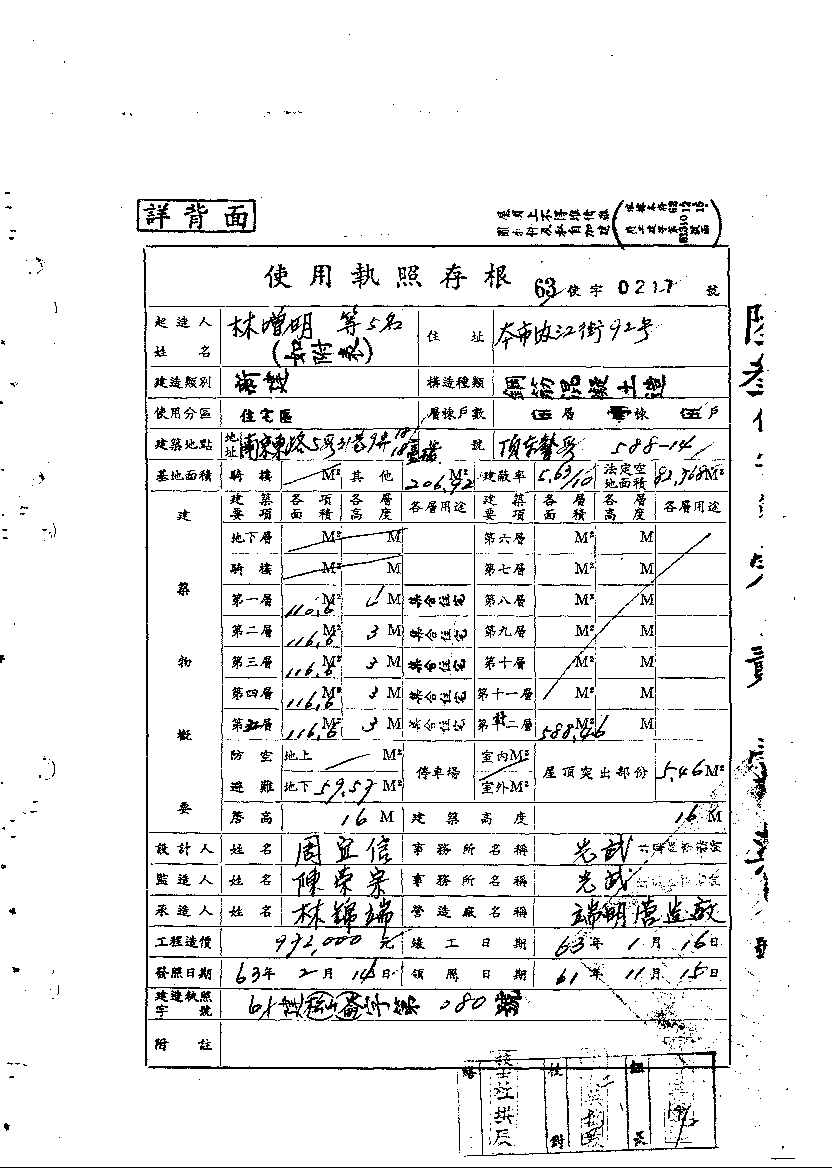 詳背面
使用執照存根 63 使字 0217 號
起造人姓名 林增明 等5名 (如附表) 住址 本市內江街92号
建造類別 構造種類 鋼筋混凝土造
使用分區 住宅區 層棟戶數 層 棟 戶
建築地點 地址 南京東路5 號 588-14
基地面積 騎樓 M² 其他 206.92 M² 建蔽率 5.63/10 法定空地面積 82.768 M²
建築物概要 建築要項 各項面積 各層高度 各層用途 建築要項 各層面積 各層高度 各層用途
地下層 M² M 第六層 M² M
騎樓 M² M 第七層 M² M
第一層 110.6 M² 4 M 集合住宅 第八層 M² M
第二層 116.6 M² 3 M 集合住宅 第九層 M² M
第三層 116.6 M² 3 M 集合住宅 第十層 M² M
第四層 116.6 M² 3 M 集合住宅 第十一層 M² M
第五層 116.6 M² 3 M 集合住宅 第十二層 588.46 M² M
防空避難 地上 M² 地下 59.57 M² 停車場 室內M² 室外M² 屋頂突出部份 5.46 M²
簷高 16 M 建築高度 16 M
設計人 姓名 周宜信 事務所名稱 光武
監造人 姓名 陳榮宗 事務所名稱 光武
承造人 姓名 林錦端 營造廠名稱 端明營造廠
工程造價 992,000 元 竣工日期 63年 1月 16日
發照日期 63年 2月 14日 領照日期 61年 11月 15日
建造執照字號 61 080 號
附註